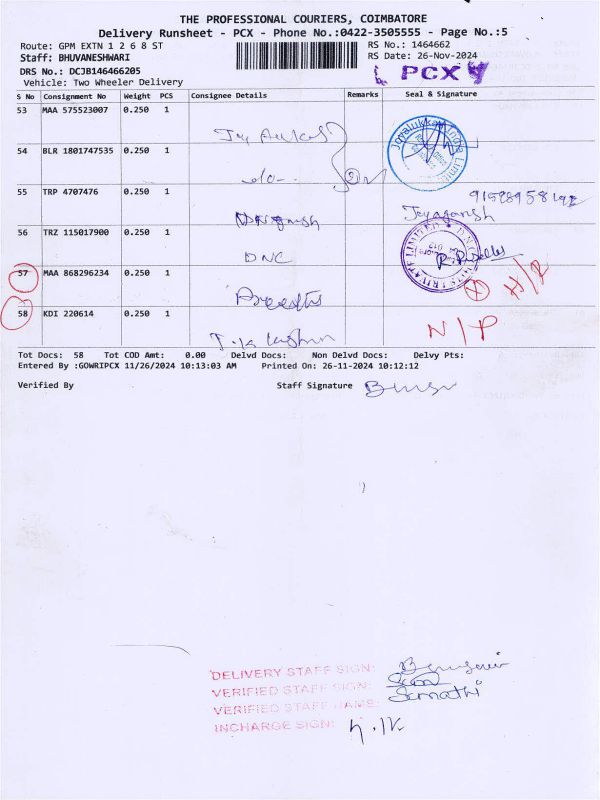 THE PROFESSIONAL COURIERS, COIMBATORE
Delivery Runsheet - PCX - Phone No.:0422-3505555 - Page No.:5
Route: GPM EXTN 1 2 6 8 ST
RS No.: 1464662
Staff: BHUVANESHWARI
RS Date: 26-Nov-2024
DRS No.: DCJB146466205
PCX
Vehicle: Two Wheeler Delivery
S No Consignment No Weight PCS Consignee Details Remarks Seal & Signature
53 MAA 575523007 0.250 1
54 BLR 1801747535 0.250 1
55 TRP 4707476 0.250 1
Jeyaganesh
56 TRZ 115017900 0.250 1
DNC
57 MAA 868296234 0.250 1
Preethi
58 KDI 220614 0.250 1
N/P
Tot Docs: 58 Tot COD Amt: 0.00 Delvd Docs: Non Delvd Docs: Delvy Pts:
Entered By :GOWRIPCX 11/26/2024 10:13:03 AM Printed On: 26-11-2024 10:12:12
Verified By Staff Signature
DELIVERY STAFF SIGN:
VERIFIED STAFF SIGN:
VERIFIED STAFF NAME:
INCHARGE SIGN: